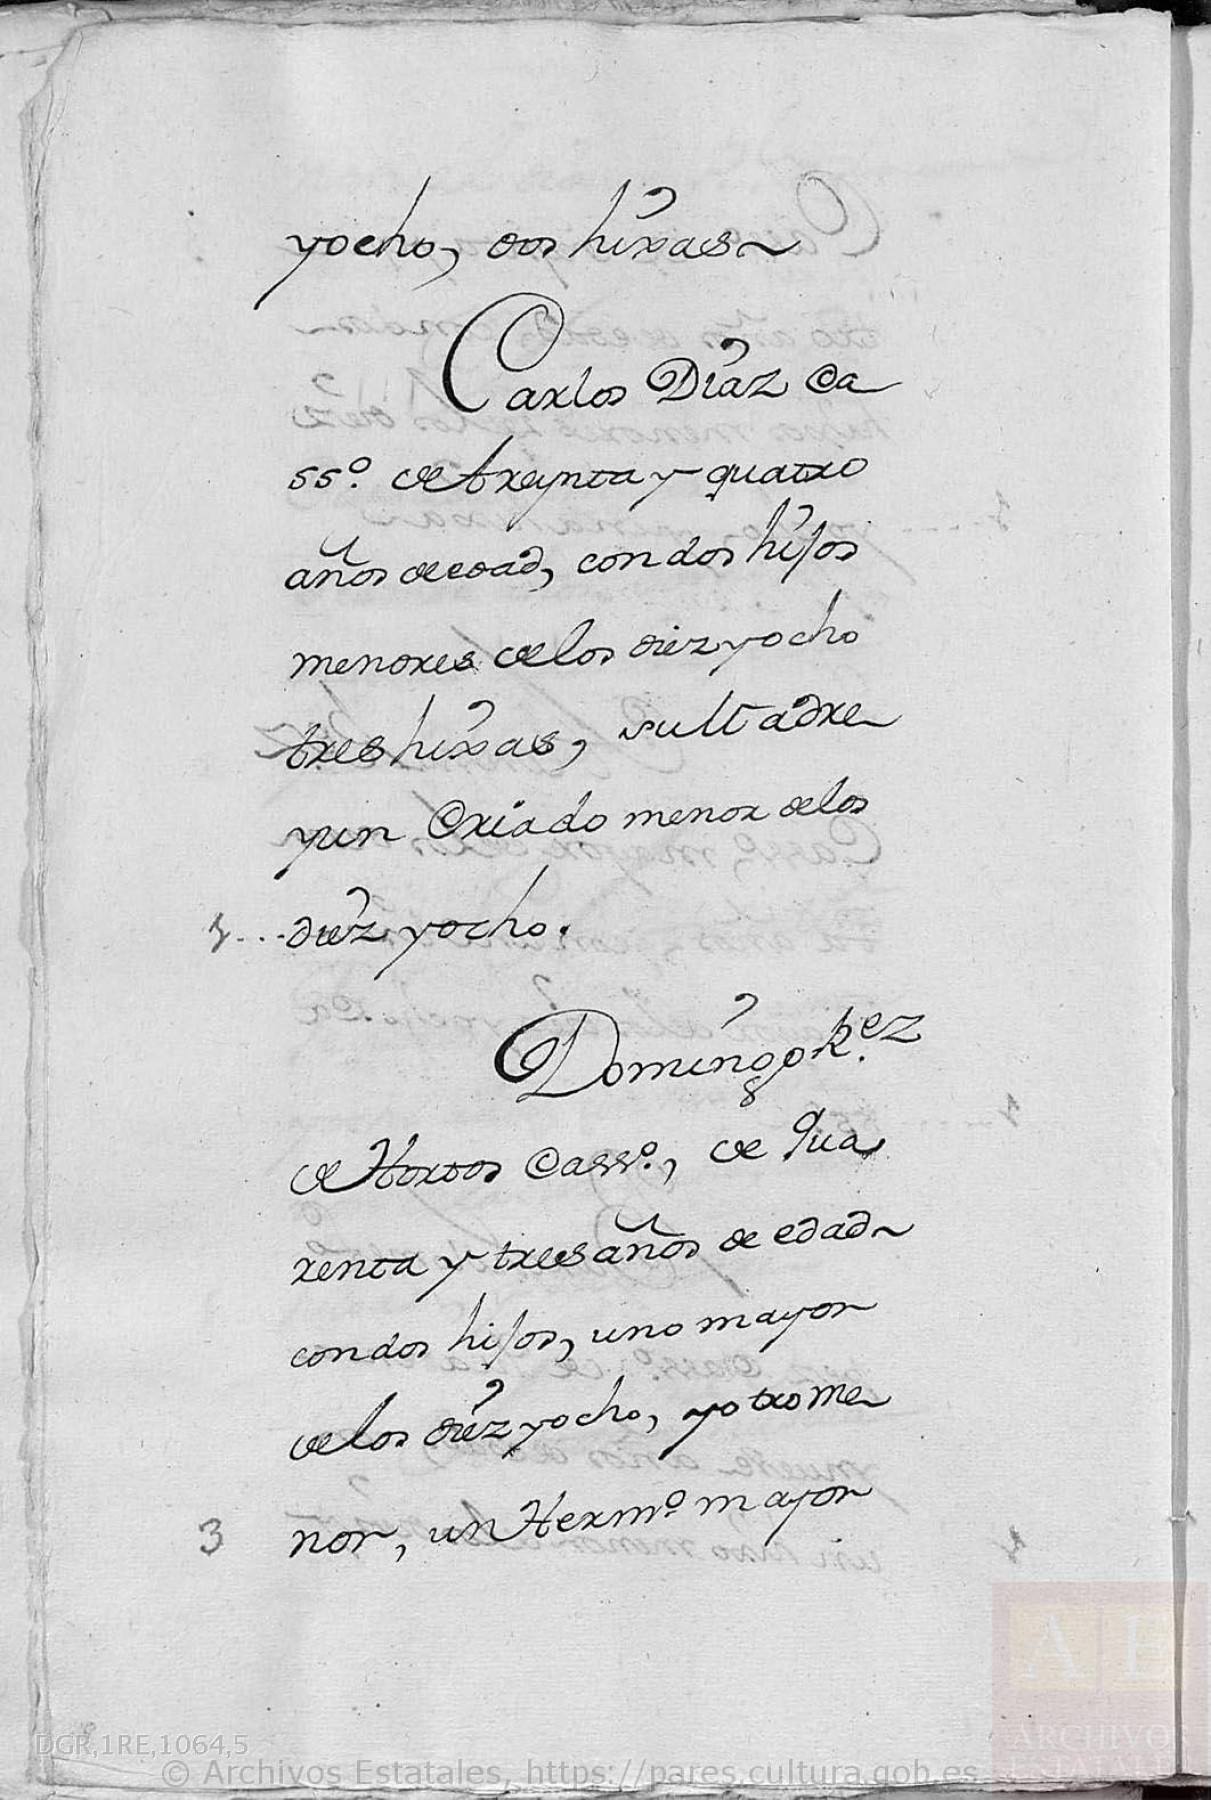 yocho, dos hixas
Carlos Diaz Ca
ssº. de treynta y quatro
años de edad, con dos hijos
menores de los diez yocho
tres hixas, su Madre
yun Criado menor de los
1....diez yocho.
Domingo Rez
de Hortos Cassº., de qua
renta y tres años de edad
con dos hijos, uno mayor
de los diez yocho, yotro me
3 nor, un Hermº mayor
DGR,1RE,1064,5
© Archivos Estatales, https://pares.cultura.gob.es
AE
ARCHIVOS
ESTATALES